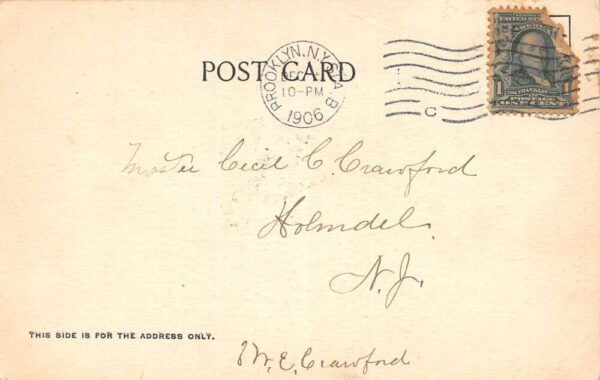 UNITED STATES
AMERICA
POST CARD
BROOKLYN, N.Y. STA. B
DEC
10-PM
1906
C
1 FRANKLIN 1
POSTAGE
ONE CENT
Master Cecil C. Crawford
Holmdel
N.J.
THIS SIDE IS FOR THE ADDRESS ONLY.
W.E. Crawford